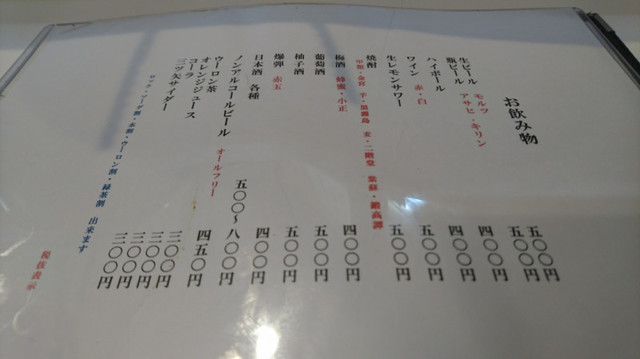 お飲み物
生ビール モルツ 五〇〇円
瓶ビール アサヒ・キリン 五〇〇円
ハイボール 四〇〇円
ワイン 赤・白 四〇〇円
生レモンサワー 五〇〇円
焼酎 甲類・金宮 芋・黒霧島 麦・二階堂 紫蘇・鍛高譚 五〇〇円
梅酒 蜂蜜・小正 四〇〇円
葡萄酒 五〇〇円
柚子酒 五〇〇円
爆弾 赤玉 四〇〇円
日本酒 各種 五〇〇〜八〇〇円
ノンアルコールビール オールフリー 四五〇円
ウーロン茶 三〇〇円
オレンジジュース 三〇〇円
コーラ 三〇〇円
三ツ矢サイダー 三〇〇円
ロック・ソーダ割・水割・ウーロン割・緑茶割 出来ます
税抜表示